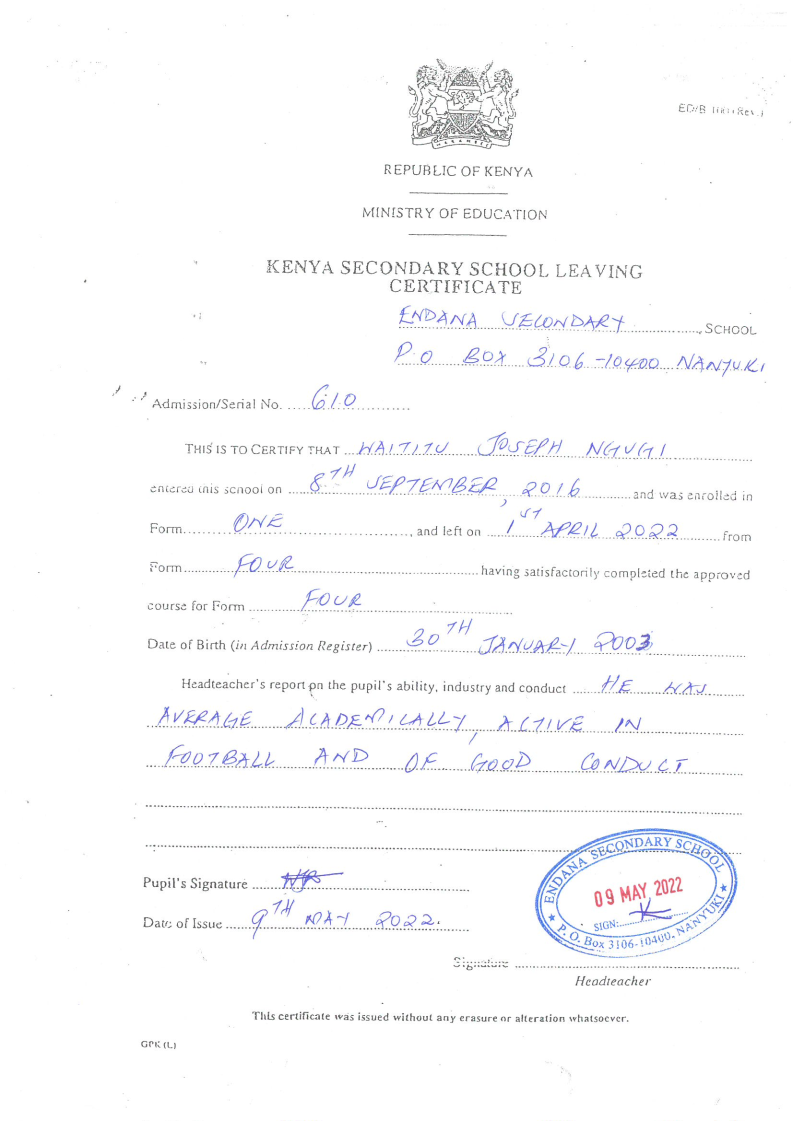 ED/B
REPUBLIC OF KENYA
MINISTRY OF EDUCATION
KENYA SECONDARY SCHOOL LEAVING
CERTIFICATE
ENDANA SECONDARY, SCHOOL
P.O BOX 3106-10400 NANYUKI
Admission/Serial No. 610
THIS IS TO CERTIFY THAT WAITITU JOSEPH NGUGI
entered this school on 8TH SEPTEMBER, 2016 and was enrolled in
Form ONE, and left on 1ST APRIL 2022 from
Form FOUR having satisfactorily completed the approved
course for Form FOUR
Date of Birth (in Admission Register) 30TH JANUARY 2003
Headteacher's report on the pupil's ability, industry and conduct HE WAS
AVERAGE ACADEMICALLY, ACTIVE IN
FOOTBALL AND OF GOOD CONDUCT
ENDANA SECONDARY SCHOOL
09 MAY 2022
SIGN:
P.O. Box 3106-10400, NANYUKI
Pupil's Signature
Date of Issue 9TH MAY 2022.
Signature
Headteacher
This certificate was issued without any erasure or alteration whatsoever.
GPK (L)